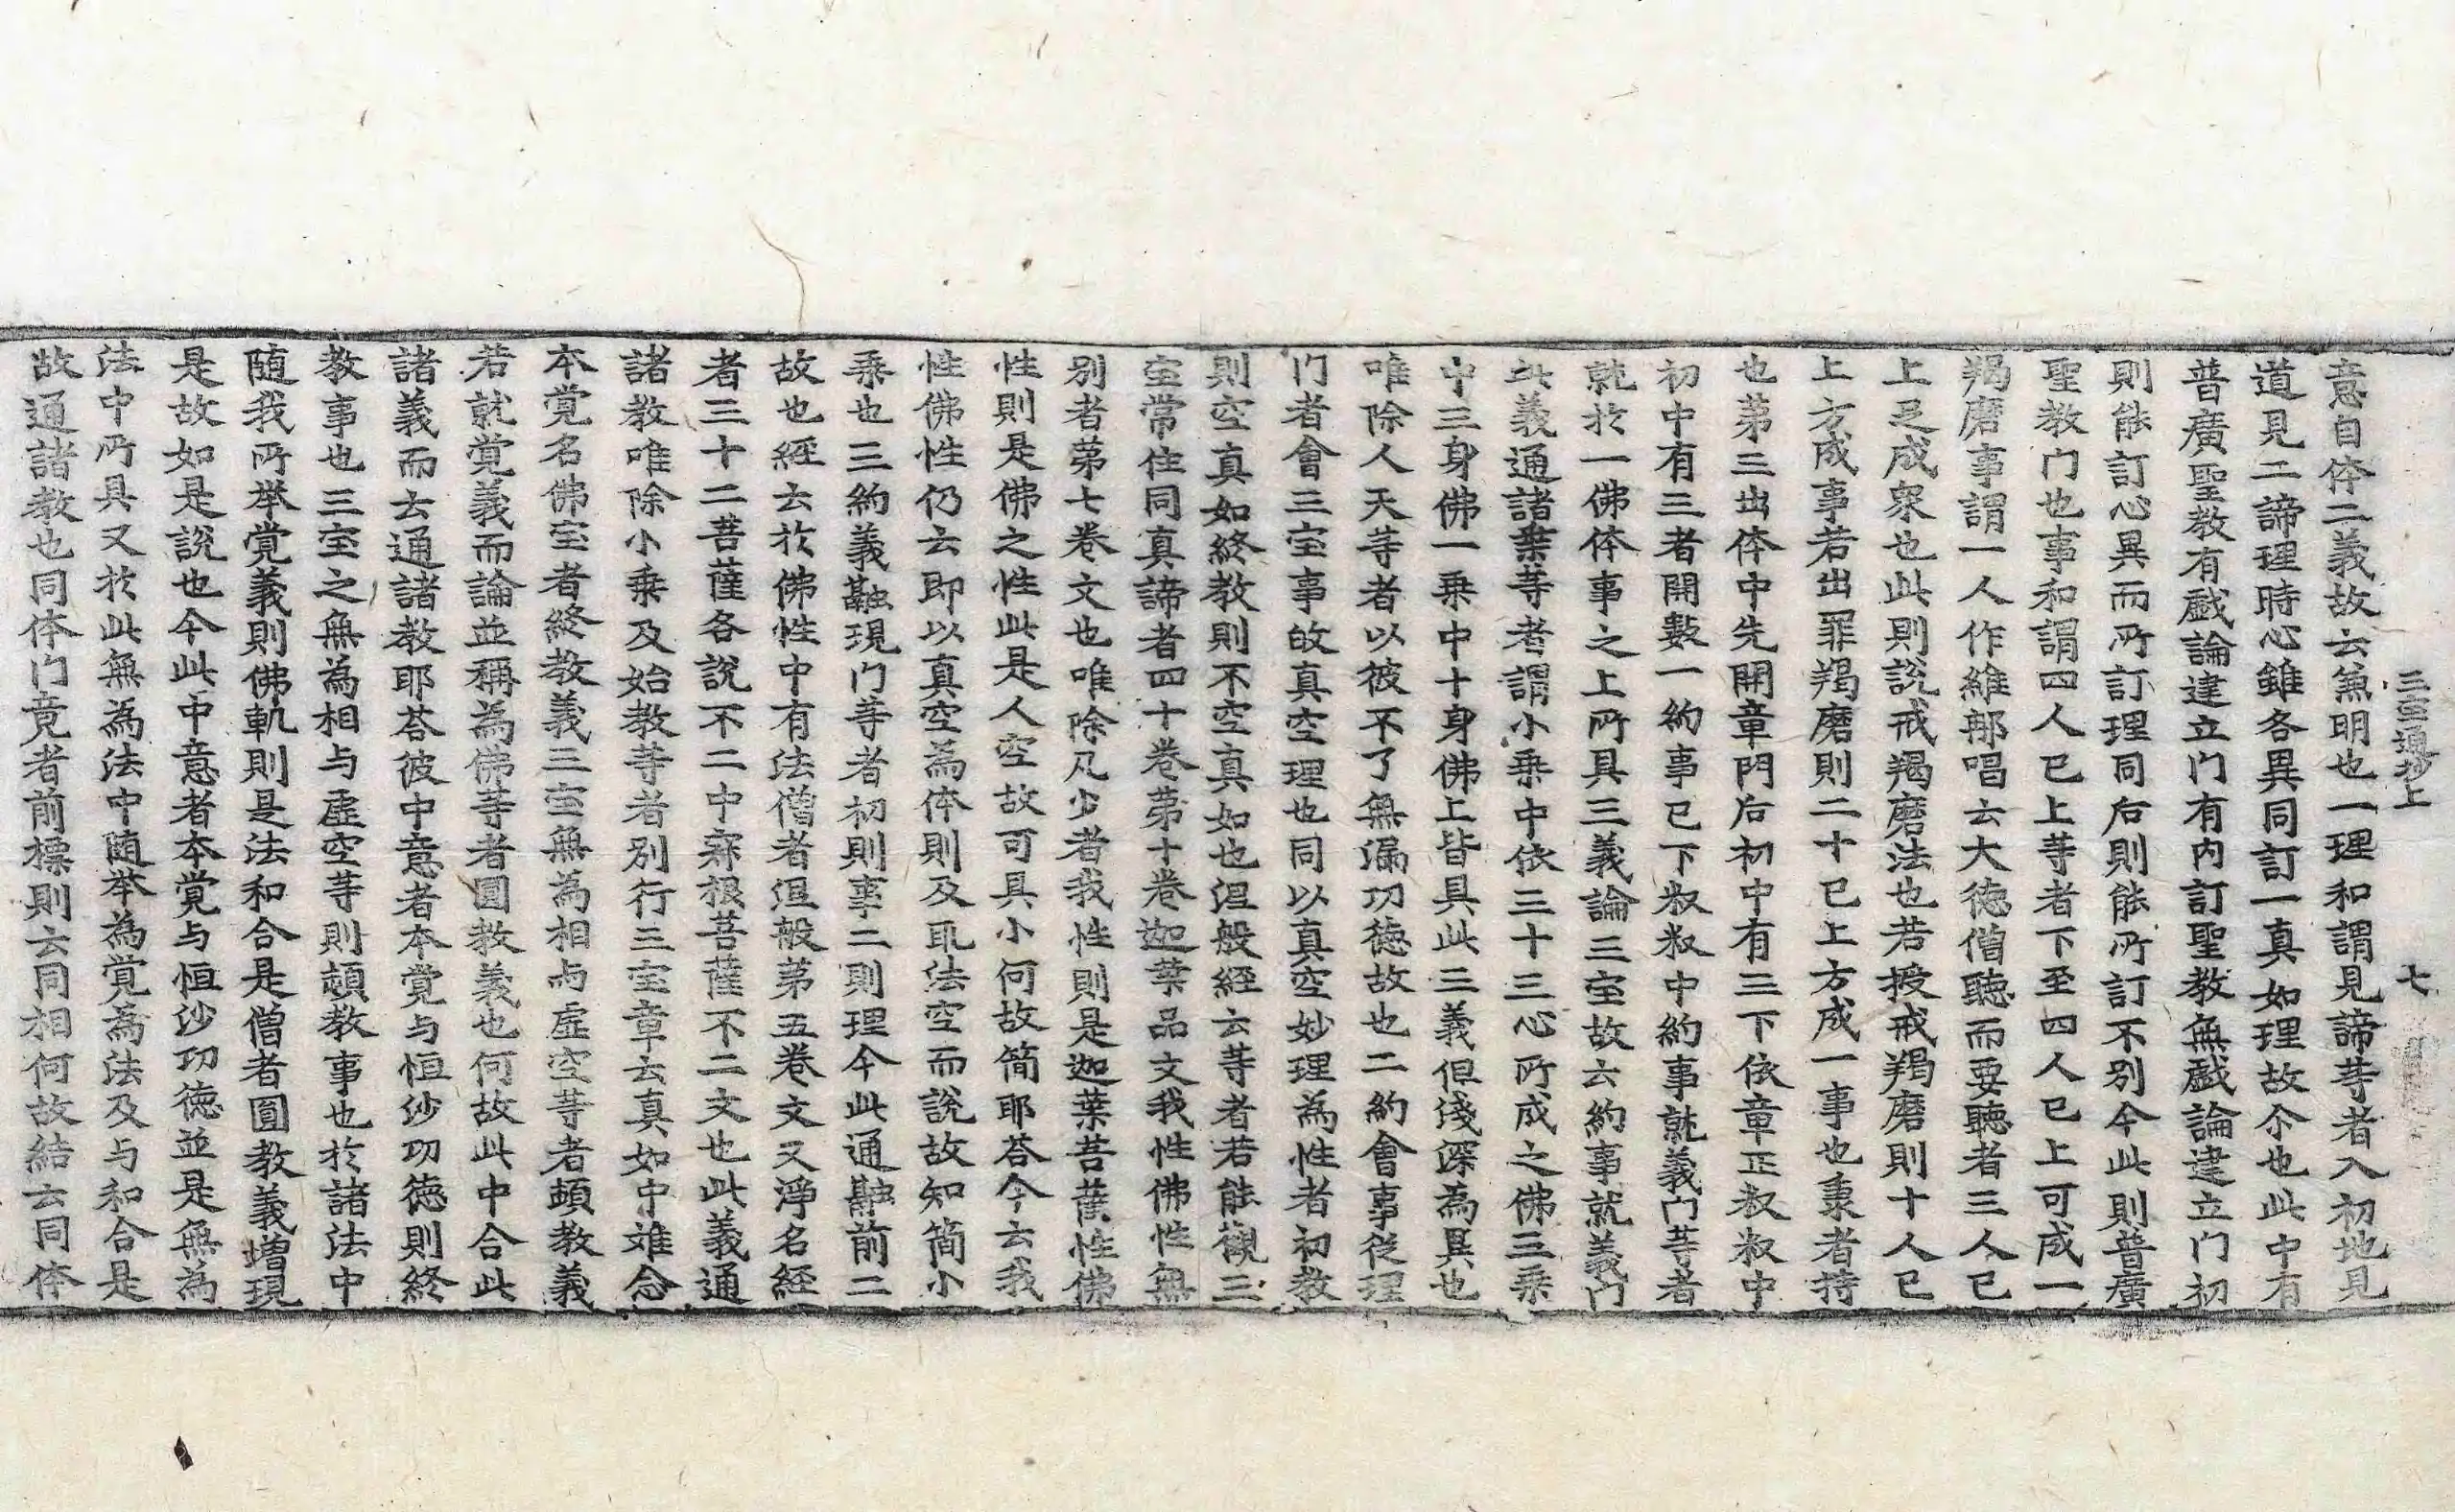 三宝章通抄上　七
意自体二義故云兼明也一理和謂見諦等者入初地見
道見二諦理時心雖各異同訂一真如理故尒也此中有
普廣聖教有戱論建立门有内訂聖教無戱論建立门初
則能訂心異而所訂理同后則能所訂不別今此則普廣
聖教门也事和謂四人已上等者下至四人已上可成一
羯磨事謂一人作維那唱云大徳僧聽而要聽者三人已
上足成衆也此則説戒羯磨法也若授戒羯磨則十人已
上方成事若出罪羯磨則二十已上方成一事也秉者持
也第三出体中先開章門后初中有三下依章正叔叔中
初中有三者開數一約事已下叔叔中約事就義门等者
就於一佛体事之上所具三義論三宝故云約事就義门
此義通諸乗等者謂小乗中依三十三心所成之佛三乗
中三身佛一乗中十身佛上皆具此三義但浅深為異也
唯除人天等者以彼不了無漏功徳故也二約會事従理
门者會三宝事故真空理也同以真空妙理為性者初教
則空真如終教則不空真如也涅般経云等者若能觀三
宝常住同真諦者四十卷第十卷迦葉品文我性佛性無
別者第七卷文也唯除凡少者我性則是迦葉菩薩性佛
性則是佛之性此是人空故可具小何故簡耶荅今云我
性佛性仍云即以真空為体則及瓦法空而説故知簡小
乗也三約義融現门等者初則事二則理今此通融前二
故也経云於佛性中有法僧者涅般第五卷文又淨名経
者三十二菩薩各説不二中寂根菩薩不二文也此義通
諸教唯除小乗及始教等者別行三宝章云真如中雖念
本覚名佛宝者終教義三宝無為相与虚空等者頓教義
若就覚義而論並稱為佛等者圓教義也何故此中合此
諸義而云通諸教耶荅彼中意者本覚与恒沙功徳則終
教事也三宝之無為相与虚空等則頓教事也於諸法中
随我所举覚義則佛軌則是法和合是僧者圓教義増現
是故如是説也今此中意者本覚与恒沙功徳並是無為
法中所具又於此無為法中随举為覚為法及与和合是
故通諸教也同体门竟者前摽則云同相何故結云同体